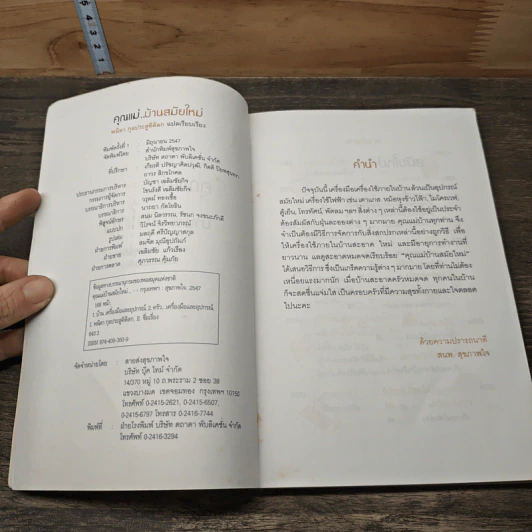 คุณแม่..บ้านสมัยใหม่
พนิดา กุลประสูติดิลก แปลเรียบเรียง
พิมพ์ครั้งที่ 1 มิถุนายน 2547
จัดพิมพ์โดย สำนักพิมพ์สุขภาพใจ
บริษัท ตถาตา พับลิเคชั่น จำกัด
ที่ปรึกษา เกียรติ ปรัชญาศิลปวุฒิ, กิตติ
ถาวร สิกขโกศล
ประธานกรรมการบริหาร บัญชา เฉลิมชัยกิจ
กรรมการผู้จัดการ โชนรังสี เฉลิมชัยกิจ
บรรณาธิการบริหาร วรุตม์ ทองเชื้อ
บรรณาธิการ
พิสูจน์อักษร
แบบปก
รูปเล่ม
ฝ่ายการพิมพ์ สมจิต
ฝ่ายขาย เฉลิมชัย แก้วเรือง
ฝ่ายการตลาด ศุภวรรณ คุ้มภัย
ข้อมูลทางบรรณานุกรมหอสมุดแห่งชาติ
คุณแม่บ้านสมัยใหม่.. -- กรุงเทพฯ : สุขภาพใจ, 2547
168 หน้า.
1. บ้าน, เครื่องมือและอุปกรณ์. 2. ครัว..เครื่องมือและอุปกรณ์.
I. พนิดา กุลประสูติดิลก, II. ชื่อเรื่อง
643.3
ISBN 974-409-360-9
จัดจำหน่ายโดย : สายส่งสุขภาพใจ
บริษัท บุ๊ค ไทม์ จำกัด
14/370 หมู่ 10 ถ.พระราม 2 ซอย 38
แขวงบางมด เขตจอมทอง กรุงเทพฯ 10150
โทรศัพท์ 0-2415-2621, 0-2415-6507,
0-2415-6797 โทรสาร 0-2416-7744
พิมพ์ที่ : ฝ่ายโรงพิมพ์ บริษัท ตถาตา พับลิเคชั่น จำกัด
โทรศัพท์ 0-2416-3294
คำนำ
ปัจจุบันนี้ เครื่องมือเครื่องใช้ภายในบ้านล้วนเป็นอุปกรณ์
สมัยใหม่ เครื่องใช้ไฟฟ้า เช่น เตาแก๊ส, หม้อหุงข้าวไฟฟ้า, ไมโครเวฟ,
ตู้เย็น, โทรทัศน์, พัดลม ฯลฯ สิ่งต่าง ๆ เหล่านี้ต้องใช้อยู่เป็นประจำ
ต้องสัมผัสกับฝุ่นละอองต่าง ๆ มากมาย คุณแม่บ้านทุกท่าน จึง
จำเป็นต้องมีวิธีการจัดการกับสิ่งสกปรกเหล่านี้อย่างถูกวิธี เพื่อ
ให้เครื่องใช้ภายในบ้านสะอาด ใหม่ และมีอายุการทำงานที่
ยาวนาน และดูสะอาดหมดจดเรียบร้อย "คุณแม่บ้านสมัยใหม่"
ได้เสนอวิธีการ ซึ่งเป็นเกร็ดความรู้ต่าง ๆ มากมาย โดยที่ท่านไม่ต้อง
เหนื่อยแรงมากนัก เมื่อบ้านสะอาดครัวหมดจด ทุกคนในบ้าน
ก็จะสดชื่นแจ่มใส เป็นครอบครัวที่มีความสุขทั้งกายและใจตลอด
ไปนะคะ
ด้วยความปรารถนาดี
สนพ. สุขภาพใจ